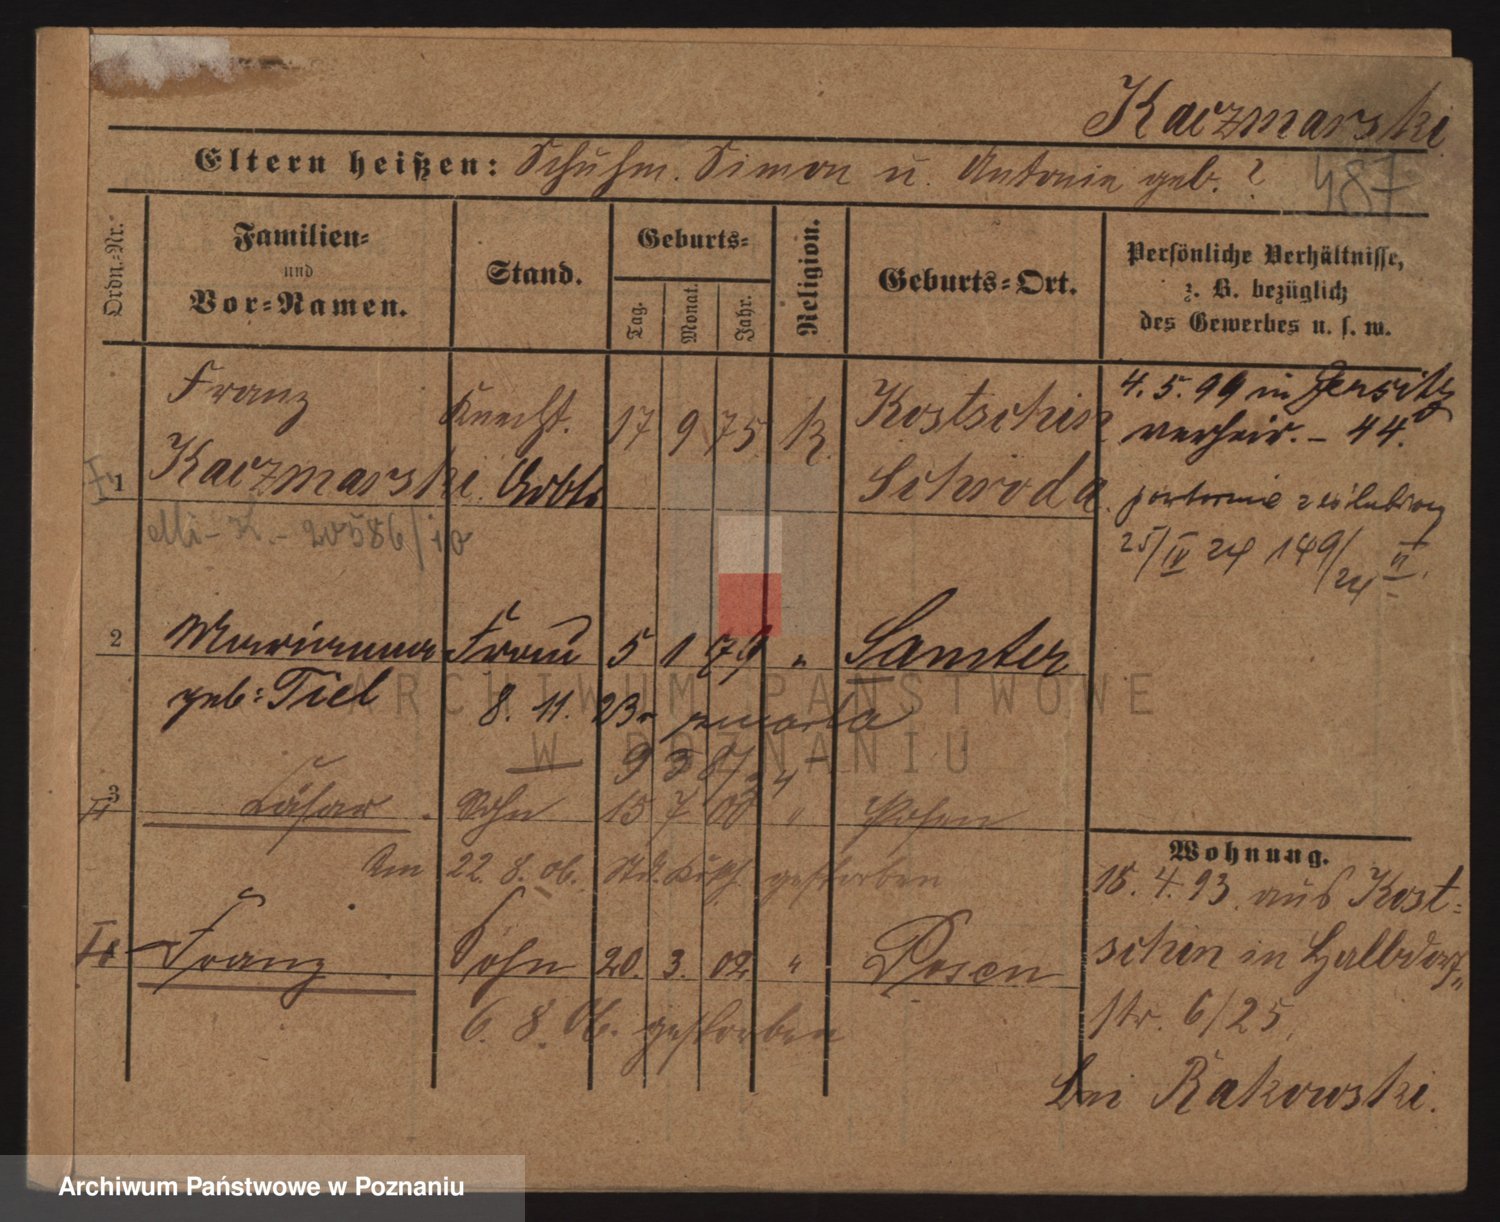 Kaczmarski
487
Eltern heißen: Schuhm. Simon u. Antonie geb. ?
Ordn.-Nr.
Familien-
und
Vor-Namen.
Stand.
Geburts-
Tag.
Monat.
Jahr.
Religion.
Geburts-Ort.
Persönliche Verhältnisse,
z. B. bezüglich
des Gewerbes u. s. w.
Franz Knecht. 17 9 75 K. Kostschin
1 Kaczmarski. Arbtr Schroda.
4.5.99 in Jersitz
verheir. - 44.
25/IV 24 149/24 II.
20586/10
2 Marianna Frau 5 1 79 " Samter
geb: Tiel 8. 11. 23. zmarła
9 3
3 Cäsar. Sohn 15 7 00 " Posen
Am 22. 8. 06. gestorben
Franz. Sohn 20. 3. 02 " Posen
6. 8. 06. gestorben
Wohnung.
15. 4. 93. aus Kost-
schin in Halbdorf-
str. 6/25,
bei Rakowski.
ARCHIWUM PAŃSTWOWE
W POZNANIU
Archiwum Państwowe w Poznaniu